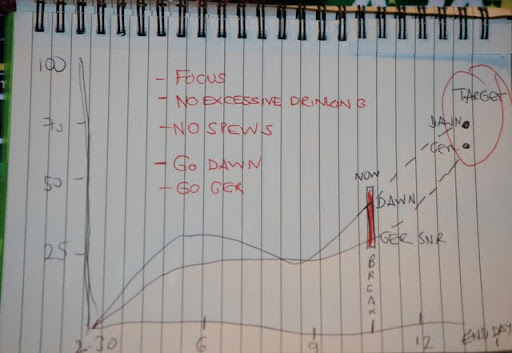 100
- FOCUS
- NO EXCESSIVE DRINKING
- NO SPEWS
- GO DAWN
- GO GER
TARGET
75
DAWN
GER
50
NOW
DAWN
25
GER SNR
BREAK
2-30
6
9
12
END DAY 1